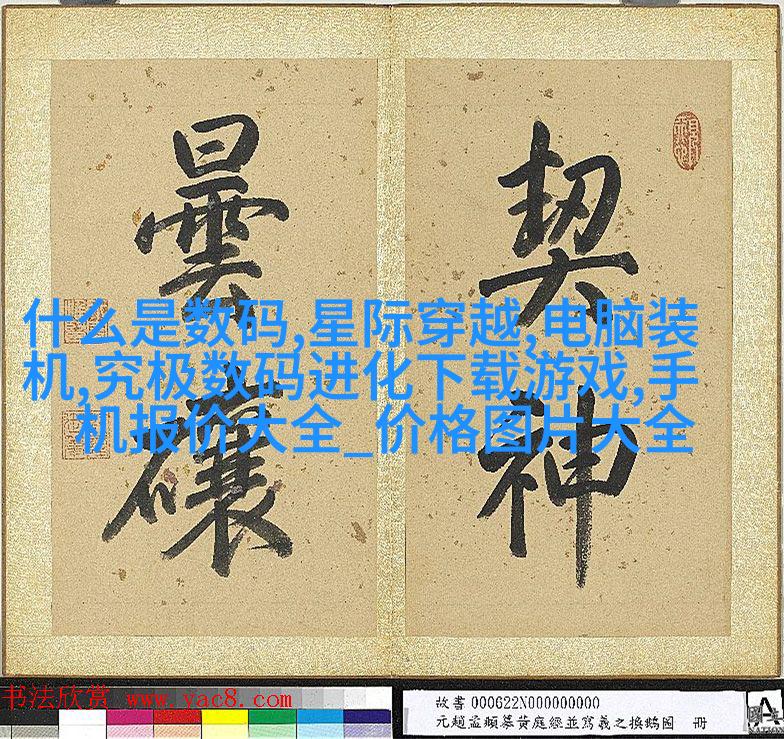 契神
曇
什么是数码,星际穿越,电脑装
机,究极数码进化下载游戏,手
机报价大全_价格图片大全
书法欣赏 www.yac8.com
故書000622N000000000
元趙孟頫摹黃庭經並寫羲之換鵝圖 冊